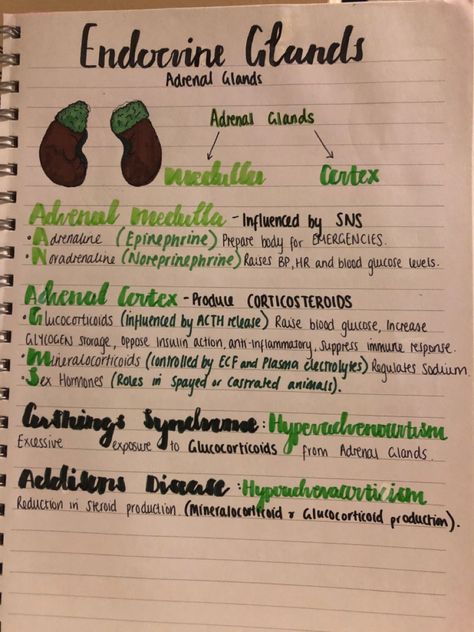 Endocrine Glands
Adrenal Glands
Adrenal Glands
Medulla Cortex
Adrenal Medulla - Influenced by SNS
• Adrenaline (Epinephrine) Prepare body for EMERGENCIES.
• Noradrenaline (Norepinephrine) Raises BP, HR and blood glucose levels.
Adrenal Cortex - Produce CORTICOSTEROIDS
• Glucocorticoids (influenced by ACTH release) Raise blood glucose, Increase
GLYCOGEN storage, oppose Insulin action, anti-inflammatory, suppress immune response.
• Mineralocorticoids (controlled by ECF and Plasma electrolytes) Regulates Sodium.
• Sex Hormones (Roles in Spayed or castrated animals).
Cushings Syndrome: Hyperadrenocortism
Excessive exposure to Glucocorticoids from Adrenal Glands.
Addisons Disease: Hypoadrenocorticism
Reduction in steroid production. (Mineralocorticoid & Glucocorticoid production).